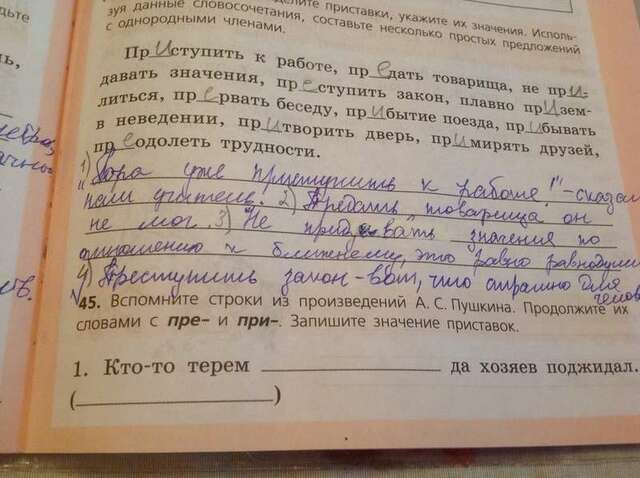 делите приставки, укажите их значения. Исполь-
зуя данные словосочетания, составьте несколько простых предложений
с однородными членами.
Приступить к работе, предать товарища, не при-
давать значения, преступить закон, плавно призем-
литься, прервать беседу, прибытие поезда, прибывать
в неведении, притворить дверь, примирять друзей,
преодолеть трудности.
1) "Пора уже приступить к работе!" - сказал
нам учитель. 2) Предать товарища он
не мог. 3) Не придавать значения по
отношению к ближнему, это равно
4) Преступить закон - вот, что страшно для
45. Вспомните строки из произведений А. С. Пушкина. Продолжите их
словами с пре– и при–. Запишите значение приставок.
1. Кто-то терем ____________ да хозяев поджидал.
(____________)